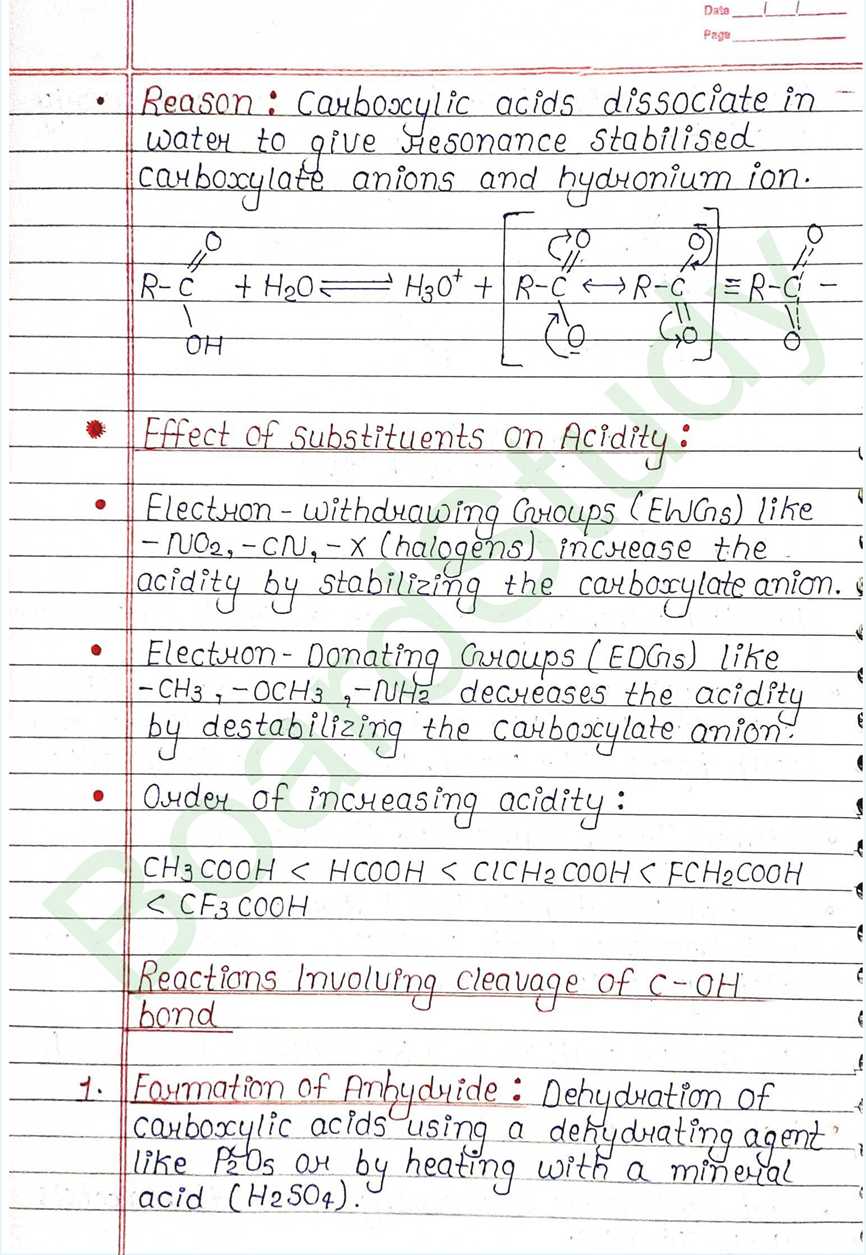 Date
Page
• Reason : Carboxylic acids dissociate in
water to give resonance stabilised
carboxylate anions and hydronium ion.
O O O O
R-C + H2O ⇌ H3O+ + [R-C ↔ R-C] ≡ R-C -
OH O O O
Effect of substituents on Acidity :
• Electron-withdrawing Groups (EWGs) like
-NO2, -CN, -X (halogens) increase the
acidity by stabilizing the carboxylate anion.
• Electron-Donating Groups (EDGs) like
-CH3, -OCH3, -NH2 decreases the acidity
by destabilizing the carboxylate anion.
• Order of increasing acidity :
CH3COOH < HCOOH < ClCH2COOH < FCH2COOH
< CF3COOH
Reactions Involving cleavage of C-OH
bond
1. Formation of Anhydride : Dehydration of
carboxylic acids using a dehydrating agent
like P2O5 or by heating with a mineral
acid (H2SO4).
BoardStudy